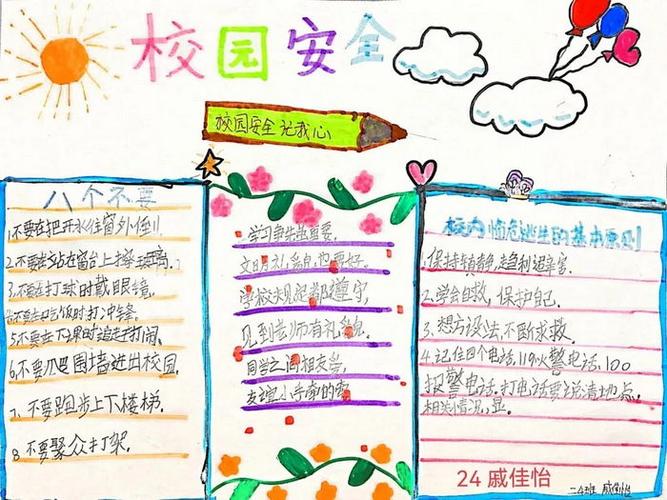 校园安全
校园安全记我心
八个不要
1.不要在把开水往窗外倒
2.不要在站在窗台上擦玻璃.
3.不要在打球时戴眼镜.
4.不要在吃饭时打冲锋.
5.不要在下课时追走打闹.
6.不要爬围墙进出校园.
7.不要跑步上下楼梯.
8.不要聚众打架.
学习争先非常重要,
文明礼貌也要好.
学校规定都遵守,
见到老师有礼貌.
同学之间相关爱,
友谊小手牵的牢.
校内临危逃生的基本原则
1.保持镇静,趋利避害.
2.学会自救,保护自己.
3.想方设法,不断求救.
4.记住四个电话,119火警电话,100
报警电话,打电话要说清地点.
相关情况,显.
24 戚佳怡
二4班 戚佳怡